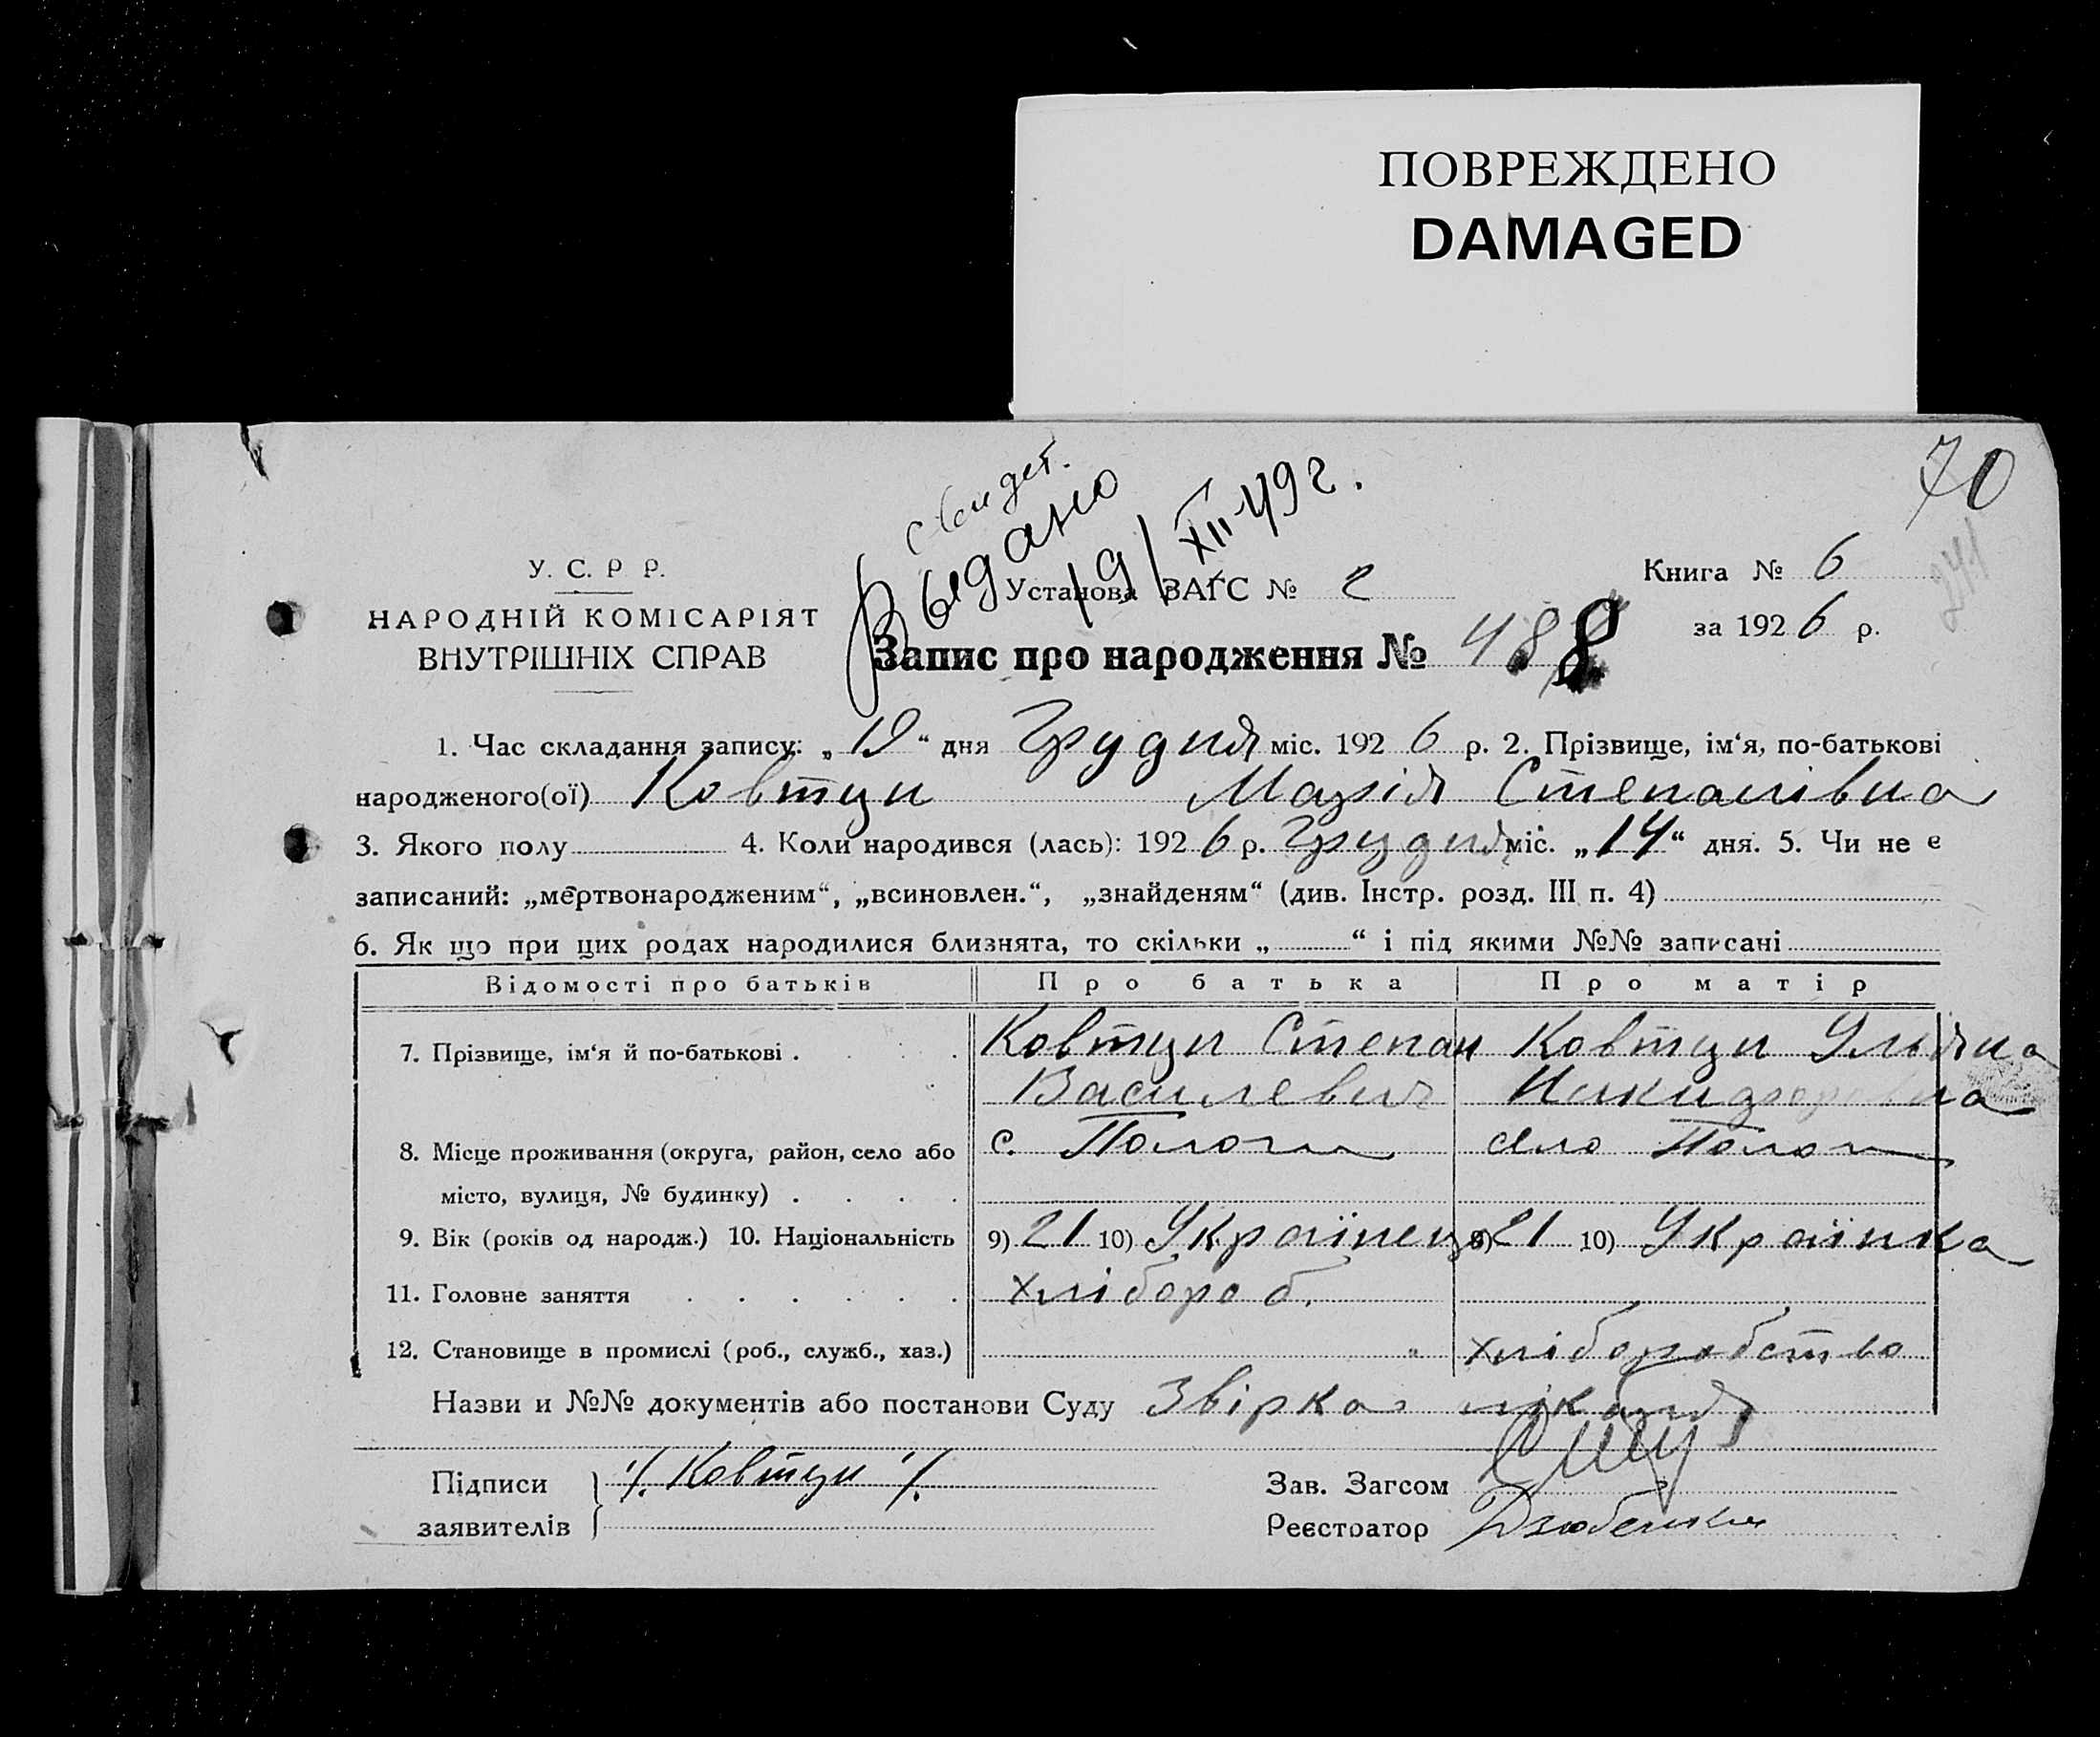 ПОВРЕЖДЕНО
DAMAGED
70
241
свидет.
Выдано
19/XII-49г.
У. С. Р Р.
НАРОДНІЙ КОМІСАРІЯТ
ВНУТРІШНІХ СПРАВ
Установа ЗАГС № 2
Книга № 6
за 1926 р.
Запис про народження № 488
1. Час складання запису: „19“ дня Грудня міс. 1926 р. 2. Прізвище, ім‘я, по-батькові
народженого(ої) Ковтун Марія Степанівна
3. Якого полу 4. Коли народився (лась): 1926 р. Грудня міс. „14“ дня. 5. Чи не є
записаний: „мертвонародженим“, „всиновлен.“, „знайденям“ (див. Інстр. розд. III п. 4)
6. Як що при цих родах народилися близнята, то скільки „ “ і під якими №№ записані
Відомості про батьків Про батька Про матір
7. Прізвище, ім‘я й по-батькові . Ковтун Степан Ковтун Уляна
Василевич
8. Місце проживання (округа, район, село або с. Пологи село Пологи
місто, вулиця, № будинку) .
9. Вік (років од народж.) 10. Національність 9) 21 10) Українець 9) 21 10) Українка
11. Головне заняття хлібороб.
12. Становище в промислі (роб., служб., хаз.) хліборобство
Назви и №№ документів або постанови Суду Звірка
Підписи /. Ковтун /.
заявителів
Зав. Загсом
Реєстратор